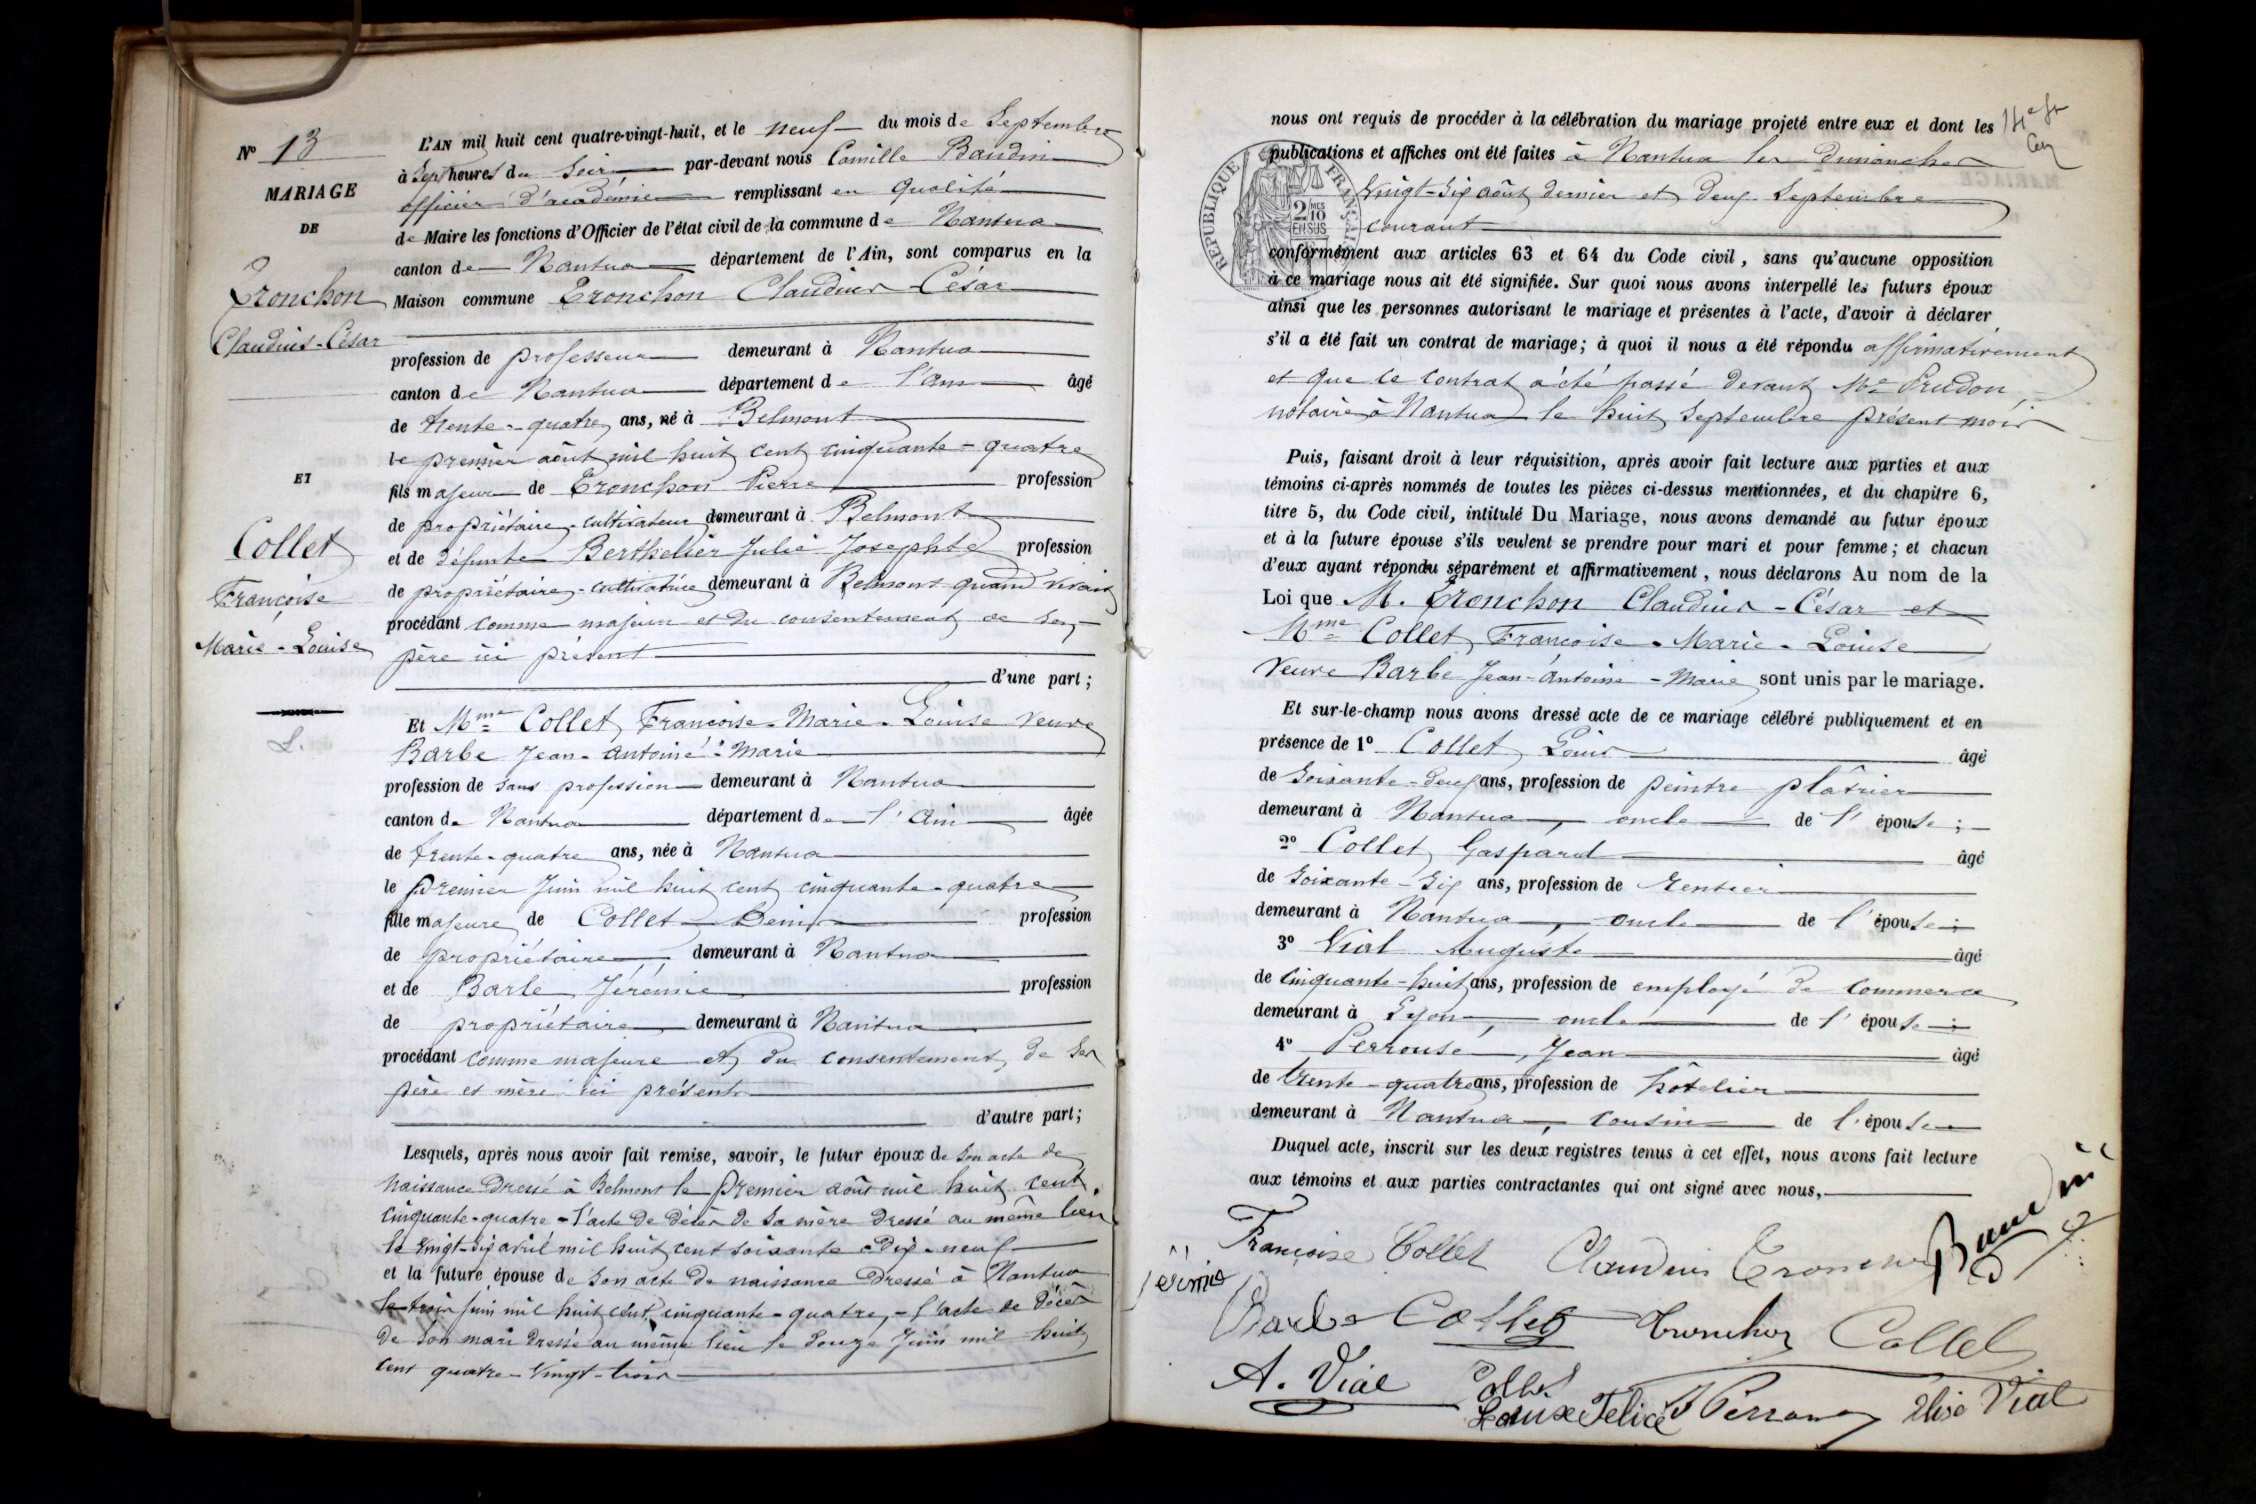 N° 13
MARIAGE
DE
Tronchon
Claudius-César
ET
Collet
Françoise
Marie-Louise
L'AN mil huit cent quatre-vingt-huit, et le neuf du mois de Septembre
à Sept heures du Soir par-devant nous Camille Baudin
officier d'académie remplissant en qualité
de Maire les fonctions d'Officier de l'état civil de la commune de Nantua
canton de Nantua département de l'Ain, sont comparus en la
Maison commune Tronchon Claudius-César
profession de professeur demeurant à Nantua
canton de Nantua département de l'ain âgé
de trente-quatre ans, né à Belmont
le premier août mil huit cent cinquante-quatre
fils majeur de Tronchon Pierre profession
de propriétaire-cultivateur demeurant à Belmont
et de défunte Berthelier Julie Josephte profession
de propriétaire-cultivatrice demeurant à Belmont quand vivait
procédant comme majeur et du consentement de son
père ici présent
d'une part ;
Et Mme Collet Françoise-Marie-Louise veuve
Barbe Jean-Antoine-Marie
profession de sans profession demeurant à Nantua
canton de Nantua département de l'ain âgée
de trente-quatre ans, née à Nantua
le premier Juin mil huit cent cinquante-quatre
fille majeure de Collet Denis profession
de propriétaire, demeurant à Nantua
et de Barle Jérémie profession
de propriétaire demeurant à Nantua
procédant comme majeure et du consentement de ses
père et mère ici présents
d'autre part ;
Lesquels, après nous avoir fait remise, savoir, le futur époux de son acte de
naissance dressé à Belmont le premier août mil huit cent
cinquante-quatre - l'acte de décès de sa mère dressé au même lieu
le vingt-six avril mil huit cent soixante-dix-neuf
et la future épouse de son acte de naissance dressé à Nantua
le trois juin mil huit cent cinquante-quatre, - l'acte de décès
de son mari dressé au même lieu le douze Juin mil huit
cent quatre-vingt-trois
nous ont requis de procéder à la célébration du mariage projeté entre eux et dont les
publications et affiches ont été faites à Nantua les dimanches
vingt-six août dernier et deux Septembre
courant
RÉPUBLIQUE FRANÇAISE
2 MES
10
EN SUS
conformément aux articles 63 et 64 du Code civil, sans qu'aucune opposition
à ce mariage nous ait été signifiée. Sur quoi nous avons interpellé les futurs époux
ainsi que les personnes autorisant le mariage et présentes à l'acte, d'avoir à déclarer
s'il a été fait un contrat de mariage ; à quoi il nous a été répondu affirmativement
et que ce contrat a été passé devant Me Prudon,
notaire à Nantua le huit Septembre présent mois
Puis, faisant droit à leur réquisition, après avoir fait lecture aux parties et aux
témoins ci-après nommés de toutes les pièces ci-dessus mentionnées, et du chapitre 6,
titre 5, du Code civil, intitulé Du Mariage, nous avons demandé au futur époux
et à la future épouse s'ils veulent se prendre pour mari et pour femme ; et chacun
d'eux ayant répondu séparément et affirmativement, nous déclarons Au nom de la
Loi que M. Tronchon Claudius-César et
Mme Collet, Françoise-Marie-Louise
veuve Barbe Jean-Antoine-Marie sont unis par le mariage.
Et sur-le-champ nous avons dressé acte de ce mariage célébré publiquement et en
présence de 1° Collet Louis âgé
de soixante-deux ans, profession de peintre plâtrier
demeurant à Nantua, oncle de l'épouse ;
2° Collet Gaspard âgé
de soixante-six ans, profession de rentier
demeurant à Nantua, oncle de l'épouse ;
3° Vial Auguste âgé
de cinquante-huit ans, profession de employé de commerce
demeurant à Lyon, oncle de l'épouse ;
4° Perrouse, Jean âgé
de trente-quatre ans, profession de hôtelier
demeurant à Nantua, cousin de l'épouse
Duquel acte, inscrit sur les deux registres tenus à cet effet, nous avons fait lecture
aux témoins et aux parties contractantes qui ont signé avec nous,
Françoise Collet Claudius Tronchon Baudin
Jérémie
Barle Collet Tronchon Collet
A. Vial Collet
Louise Félicé J Perrouse Elise Vial